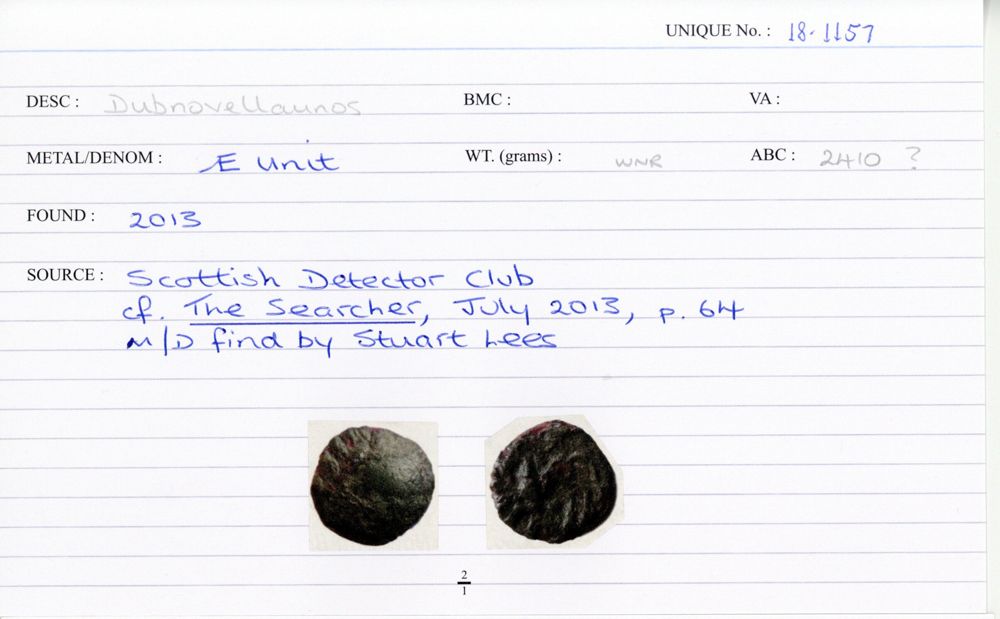 UNIQUE No. : 18-1157
DESC : Dubnovellaunos BMC : VA :
METAL/DENOM : Æ unit WT. (grams) : WNR ABC : 2410 ?
FOUND : 2013
SOURCE : Scottish Detector Club
cf. The Searcher, July 2013, p. 64
M/D find by Stuart Lees
2
1